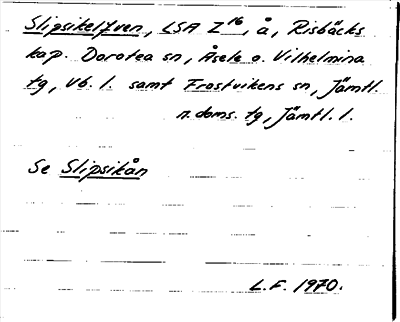 Slipsikelfven, LSA Z 16, å, Risbäcks
kap. Dorotea sn, Åsele o. Vilhelmina
tg, Vb. l. samt Frostvikens sn, Jämtl.
n. doms. tg, Jämtl. l.
Se Slipsikån
L.F. 1970.